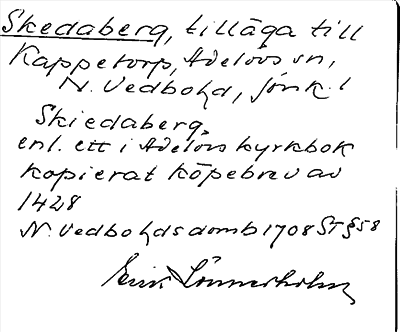 Skedaberg, tilläga till
Kappetorp, Adelövs sn,
N. Vedbo hd, Jönk. l
Skiedaberg,
enl. ett i Adelövs kyrkbok
kopierat köpebrev av
1428
N. Vedbo hds domb 1708 ST § 58